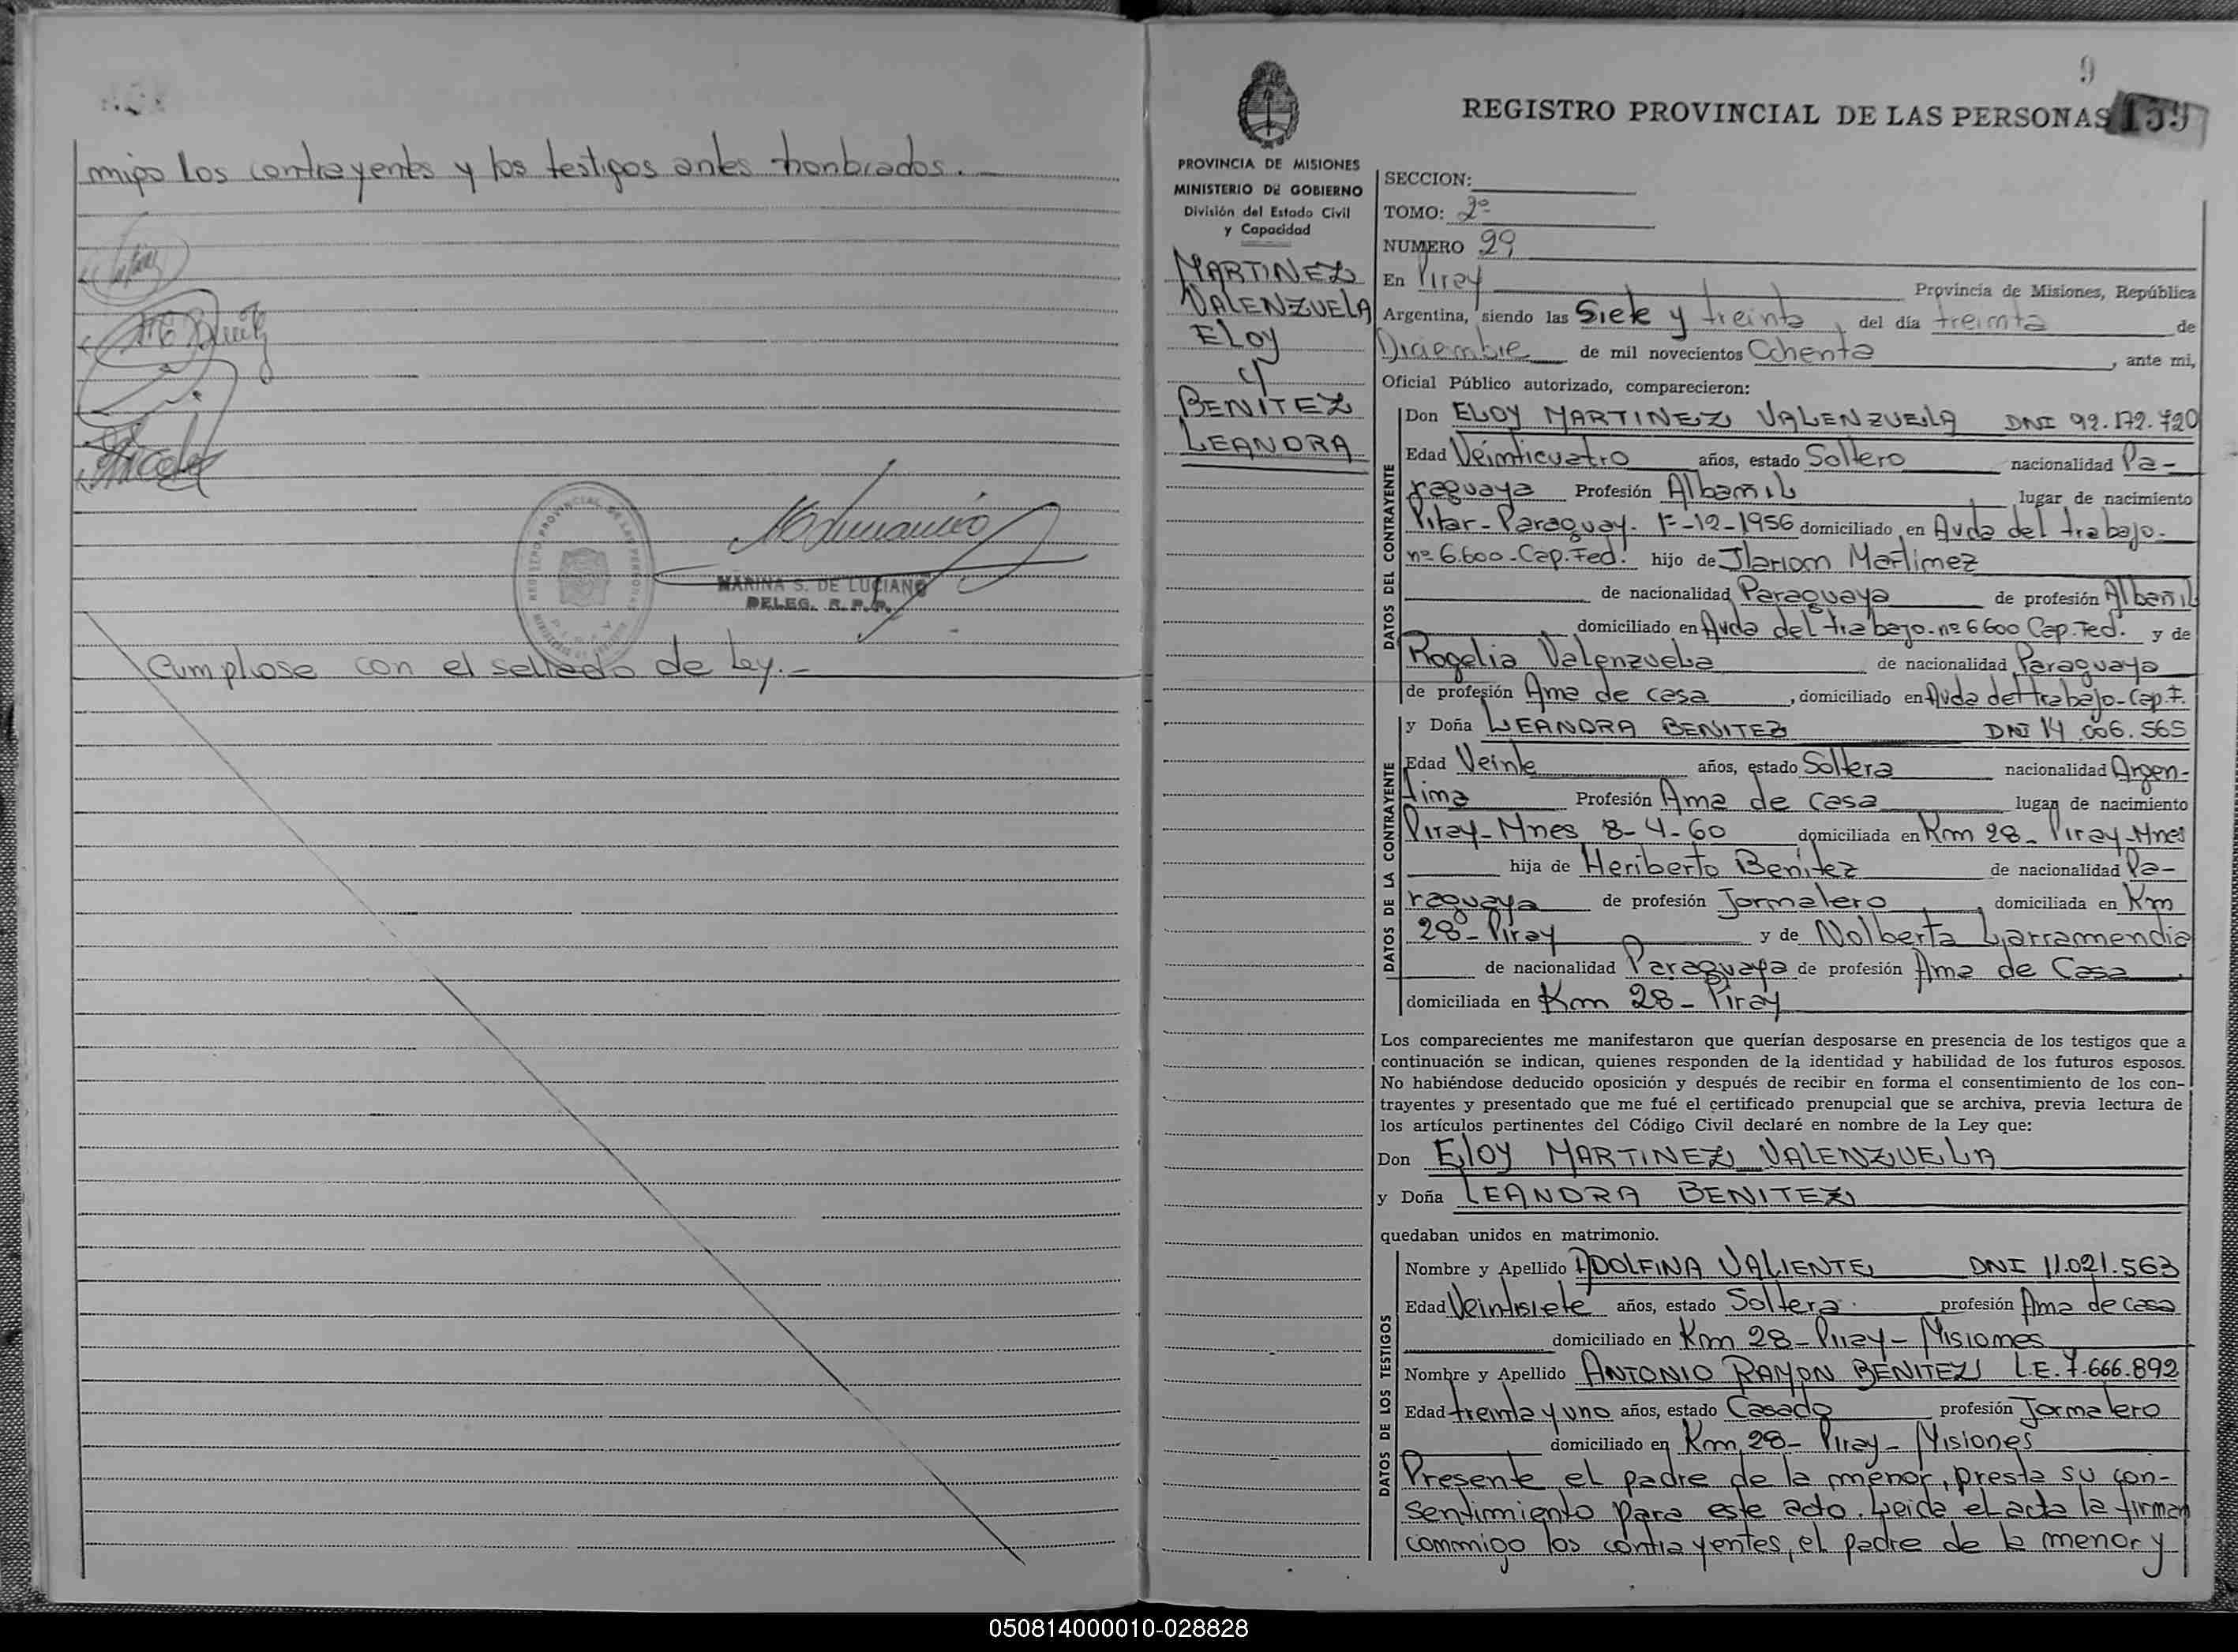 migo los contrayentes y los testigos antes nonbrados.
MARINA S. DE LUCIANO
DELEG. R. P. P.
Cumplase con el sellado de Ley.-
9
REGISTRO PROVINCIAL DE LAS PERSONAS 139
PROVINCIA DE MISIONES
MINISTERIO DE GOBIERNO
División del Estado Civil
y Capacidad
MARTINEZ
VALENZUELA
ELOY
y
BENITEZ
LEANDRA
SECCION:
TOMO: 2º
NUMERO 29
En Piray Provincia de Misiones, República
Argentina, siendo las Siete y treinta, del día treinta de
Diciembre de mil novecientos Ochenta, ante mi,
Oficial Público autorizado, comparecieron:
DATOS DEL CONTRAYENTE
Don ELOY MARTINEZ VALENZUELA DNI 92.172.720
Edad Veinticuatro años, estado Soltero nacionalidad Pa-
raguaya Profesión Albañil lugar de nacimiento
Pilar-Paraguay. 1º-12-1956 domiciliado en Avda del trabajo-
nº 6.600-Cap.Fed. hijo de Ilarion Martinez
de nacionalidad Paraguaya de profesión Albañil
domiciliado en Avda del trabajo-nº 6600 Cap.Fed. y de
Rogelia Valenzuela de nacionalidad Paraguaya
de profesión Ama de casa, domiciliado en Avda del trabajo-Cap.F.
DATOS DE LA CONTRAYENTE
y Doña LEANDRA BENITEZ DNI 14.006.565
Edad Veinte años, estado Soltera nacionalidad Argen-
tina Profesión Ama de casa lugar de nacimiento
Piray-Mnes 8-4-60 domiciliada en Km 28-Piray-Mnes
hija de Heriberto Benitez de nacionalidad Pa-
raguaya de profesión Jornalero, domiciliada en Km
28-Piray y de Nolberta Larramendia
de nacionalidad Paraguaya de profesión Ama de Casa
domiciliada en Km 28-Piray
Los comparecientes me manifestaron que querían desposarse en presencia de los testigos que a
continuación se indican, quienes responden de la identidad y habilidad de los futuros esposos.
No habiéndose deducido oposición y después de recibir en forma el consentimiento de los con-
trayentes y presentado que me fué el certificado prenupcial que se archiva, previa lectura de
los artículos pertinentes del Código Civil declaré en nombre de la Ley que:
Don ELOY MARTINEZ VALENZUELA
y Doña LEANDRA BENITEZ
quedaban unidos en matrimonio.
DATOS DE LOS TESTIGOS
Nombre y Apellido ADOLFINA VALIENTE DNI 11.021.563
Edad Veintisiete años, estado Soltera. profesión Ama de casa
domiciliado en Km 28-Piray-Misiones
Nombre y Apellido ANTONIO RAMON BENITEZ L.E. 7.666.892
Edad treinta y uno años, estado Casado profesión Jornalero
domiciliado en Km 28-Piray-Misiones
Presente el padre de la menor, presta su con-
sentimiento para este acto. Leida el acta la firman
conmigo los contrayentes, el padre de la menor y
050814000010-028828